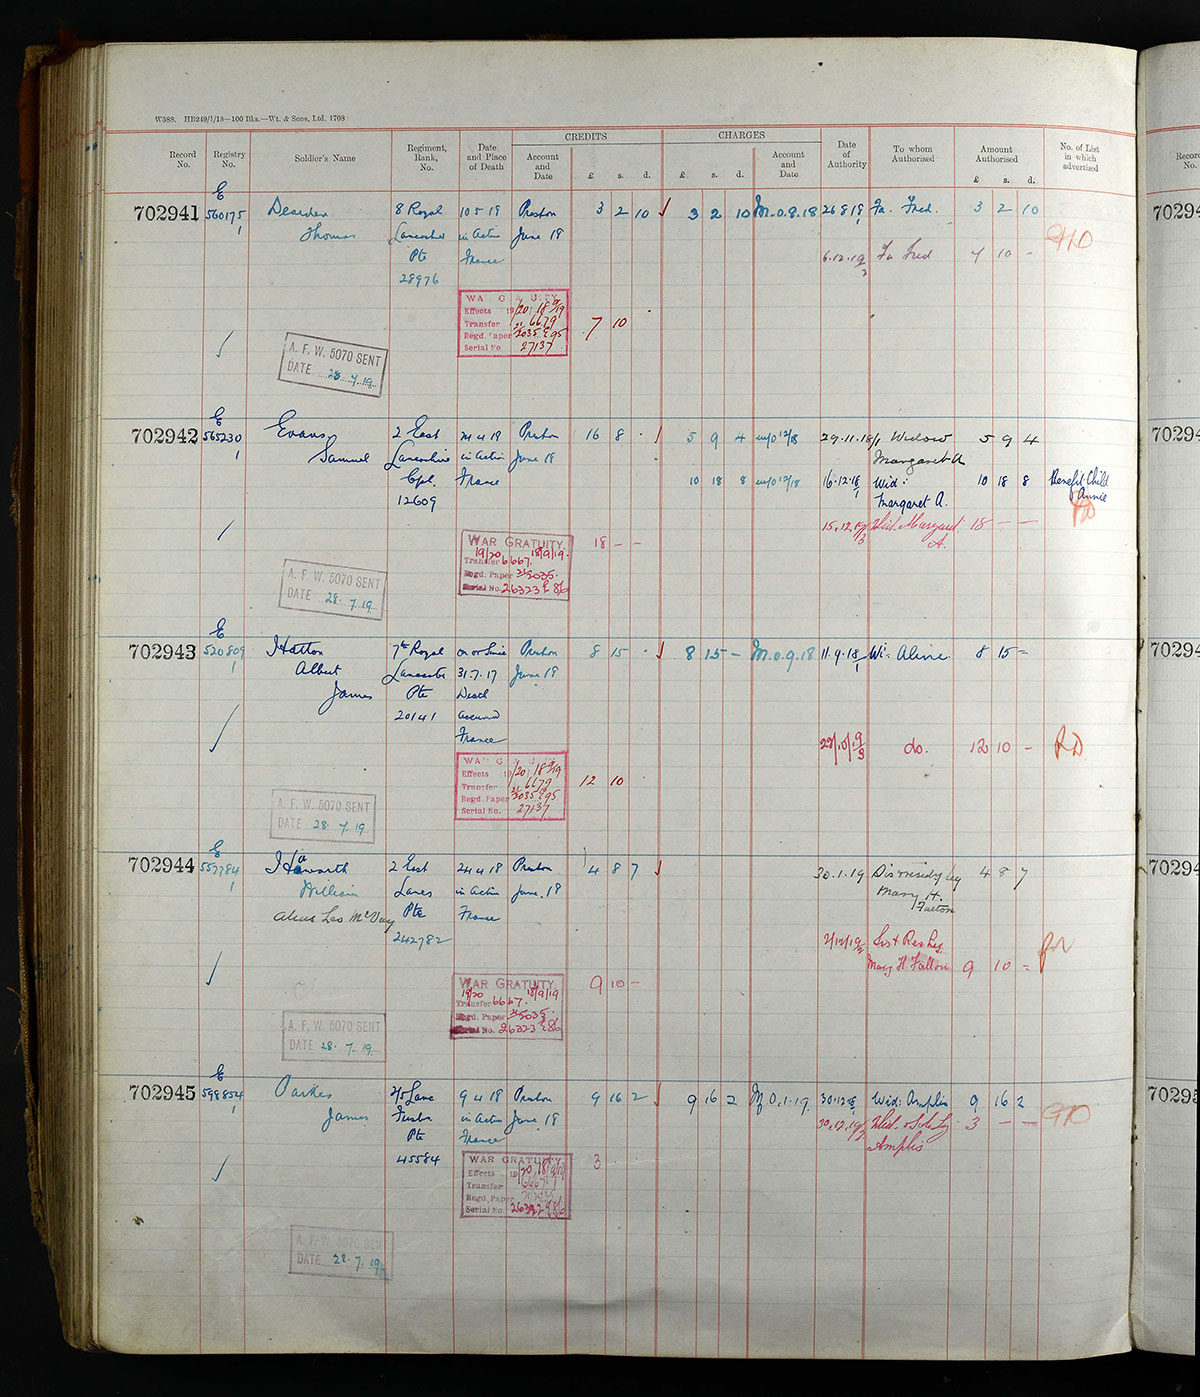 W588. HB249/1/18—100 Bks.—Wt. & Sons, Ltd. 1708
CREDITS CHARGES
Record No. Registry No. Soldier's Name Regiment, Rank, No. Date and Place of Death Account and Date £ s. d. £ s. d. Account and Date Date of Authority To whom Authorised Amount Authorised £ s. d. No. of List in which advertised
E
702941 560175 Dearden 8 Royal 10 5 18 Preston 3 2 10 3 2 10 M.O.8.18 26 8 18 Fa. Fred. 3 2 10
1 Thomas Lancaster in Action June 18
Pte France 6.12.19 Fa Fred 7 10 -
28976
WAR GRATUITY
Effects 19/20 18/9/19
Transfer 6679 7 10
Regd. Paper
Serial No 27137
A. F. W. 5070 SENT
DATE 28.7.19
E
702942 565230 Evans 2 East 24 4 18 Preston 16 8 - 5 9 4 w/o 12/18 29.11.18 Widow 5 9 4
1 Samuel Lancashire in Action June 18 Margaret A
Cpl. France 10 18 8 w/o 12/18 16.12.18 Wid: 10 18 8 Benefit Child
12609 Margaret A. Annie
15.12.19 Wid. Margaret 18 - -
A.
WAR GRATUITY. 18 - -
19/20 18/9/19.
Transfer 6667.
Regd. Paper
Serial No. 26323
A. F. W. 5070 SENT
DATE 28.7.19
E
702943 520809 Hatton 7th Royal on or Since Preston 8 15 - 8 15 - M.O.9.18 11.9.18 Wi: Aline 8 15 =
1 Albert Lancaster 31.7.17 June 18
James Pte Death
20141 assumed
France 29/10/19 do. 12 10 -
WAR GRATUITY
Effects 19/20 18/9/19
Transfer 6679 12 10
Regd. Paper
Serial No. 27137
A. F. W. 5070 SENT
DATE 28.7.19
E
702944 557784 Haworth 2 East 24 4 18 Preston 4 8 7 30.1.19 4 8 7
1 William Lancs in Action June.18 Mary H.
alias Leo McVay Pte France Fallon
242782 2/12/19 Sis & Res Leg.
Mary H Fallon 9 10 =
WAR GRATUITY. 9 10 -
19/20 18/9/19
Transfer 6667.
Regd. Paper
Serial No. 26323
A. F. W. 5070 SENT
DATE 28.7.19
E
702945 598854 Parkes 2/5 Lanc 9 4 18 Preston 9 16 2 9 16 2 M O.1.19. 30.12.18 Wid: Amplis 9 16 2
1 James Fusrs in Action June 18 30.12.19 Wid. & Sole Leg 3 - -
Pte France Amplis
45584 3
WAR GRATUITY
Effects 19/20 18/9/19
Transfer 6667
Regd. Paper
Serial No.
A. F. W. 5070 SENT
DATE 28.7.19
Record No.